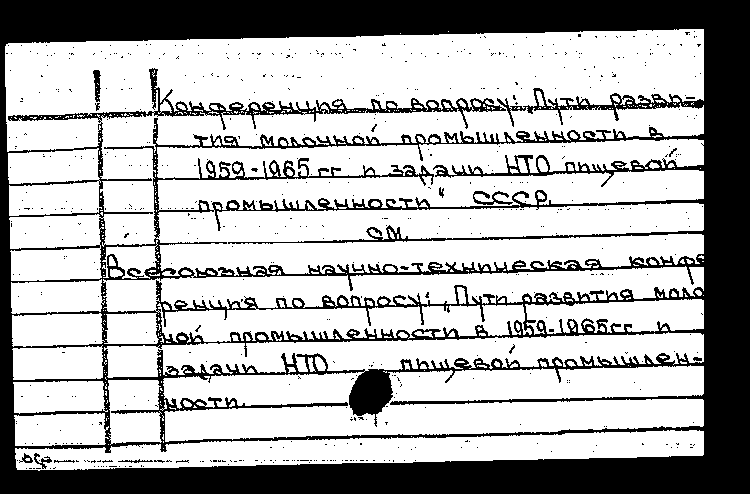 Конференция по вопросу: „Пути разви-
тия молочной промышленности в
1959-1965 гг и задачи НТО пищевой
промышленности" СССР.
см.
Всесоюзная научно-техническая конфе
ренция по вопросу: „Пути развития моло
ной промышленности в 1959-1965гг и
задачи НТО пищевой промышлен-
ности.